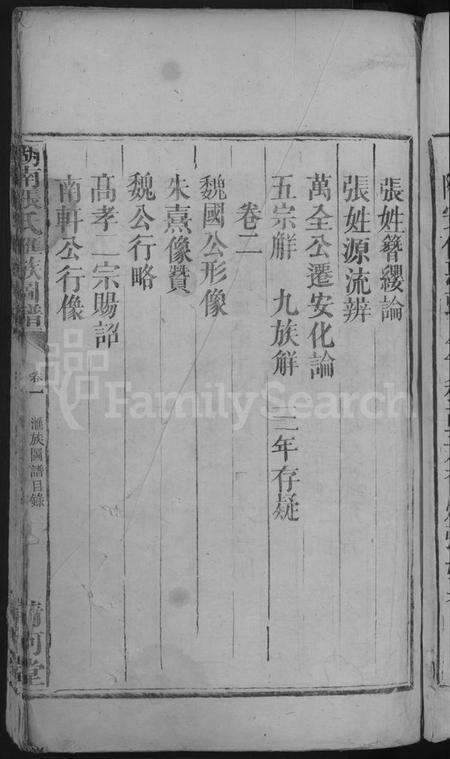 張姓簪纓論
張姓源流辨
萬全公遷安化論
五宗解 九族解 三年存疑
卷二
魏國公形像
朱熹像贊
魏公行略
高孝二宗賜詔
南軒公行像
南張氏匯族圖譜
卷一
滙族圖譜目錄
清河堂
FamilySearch